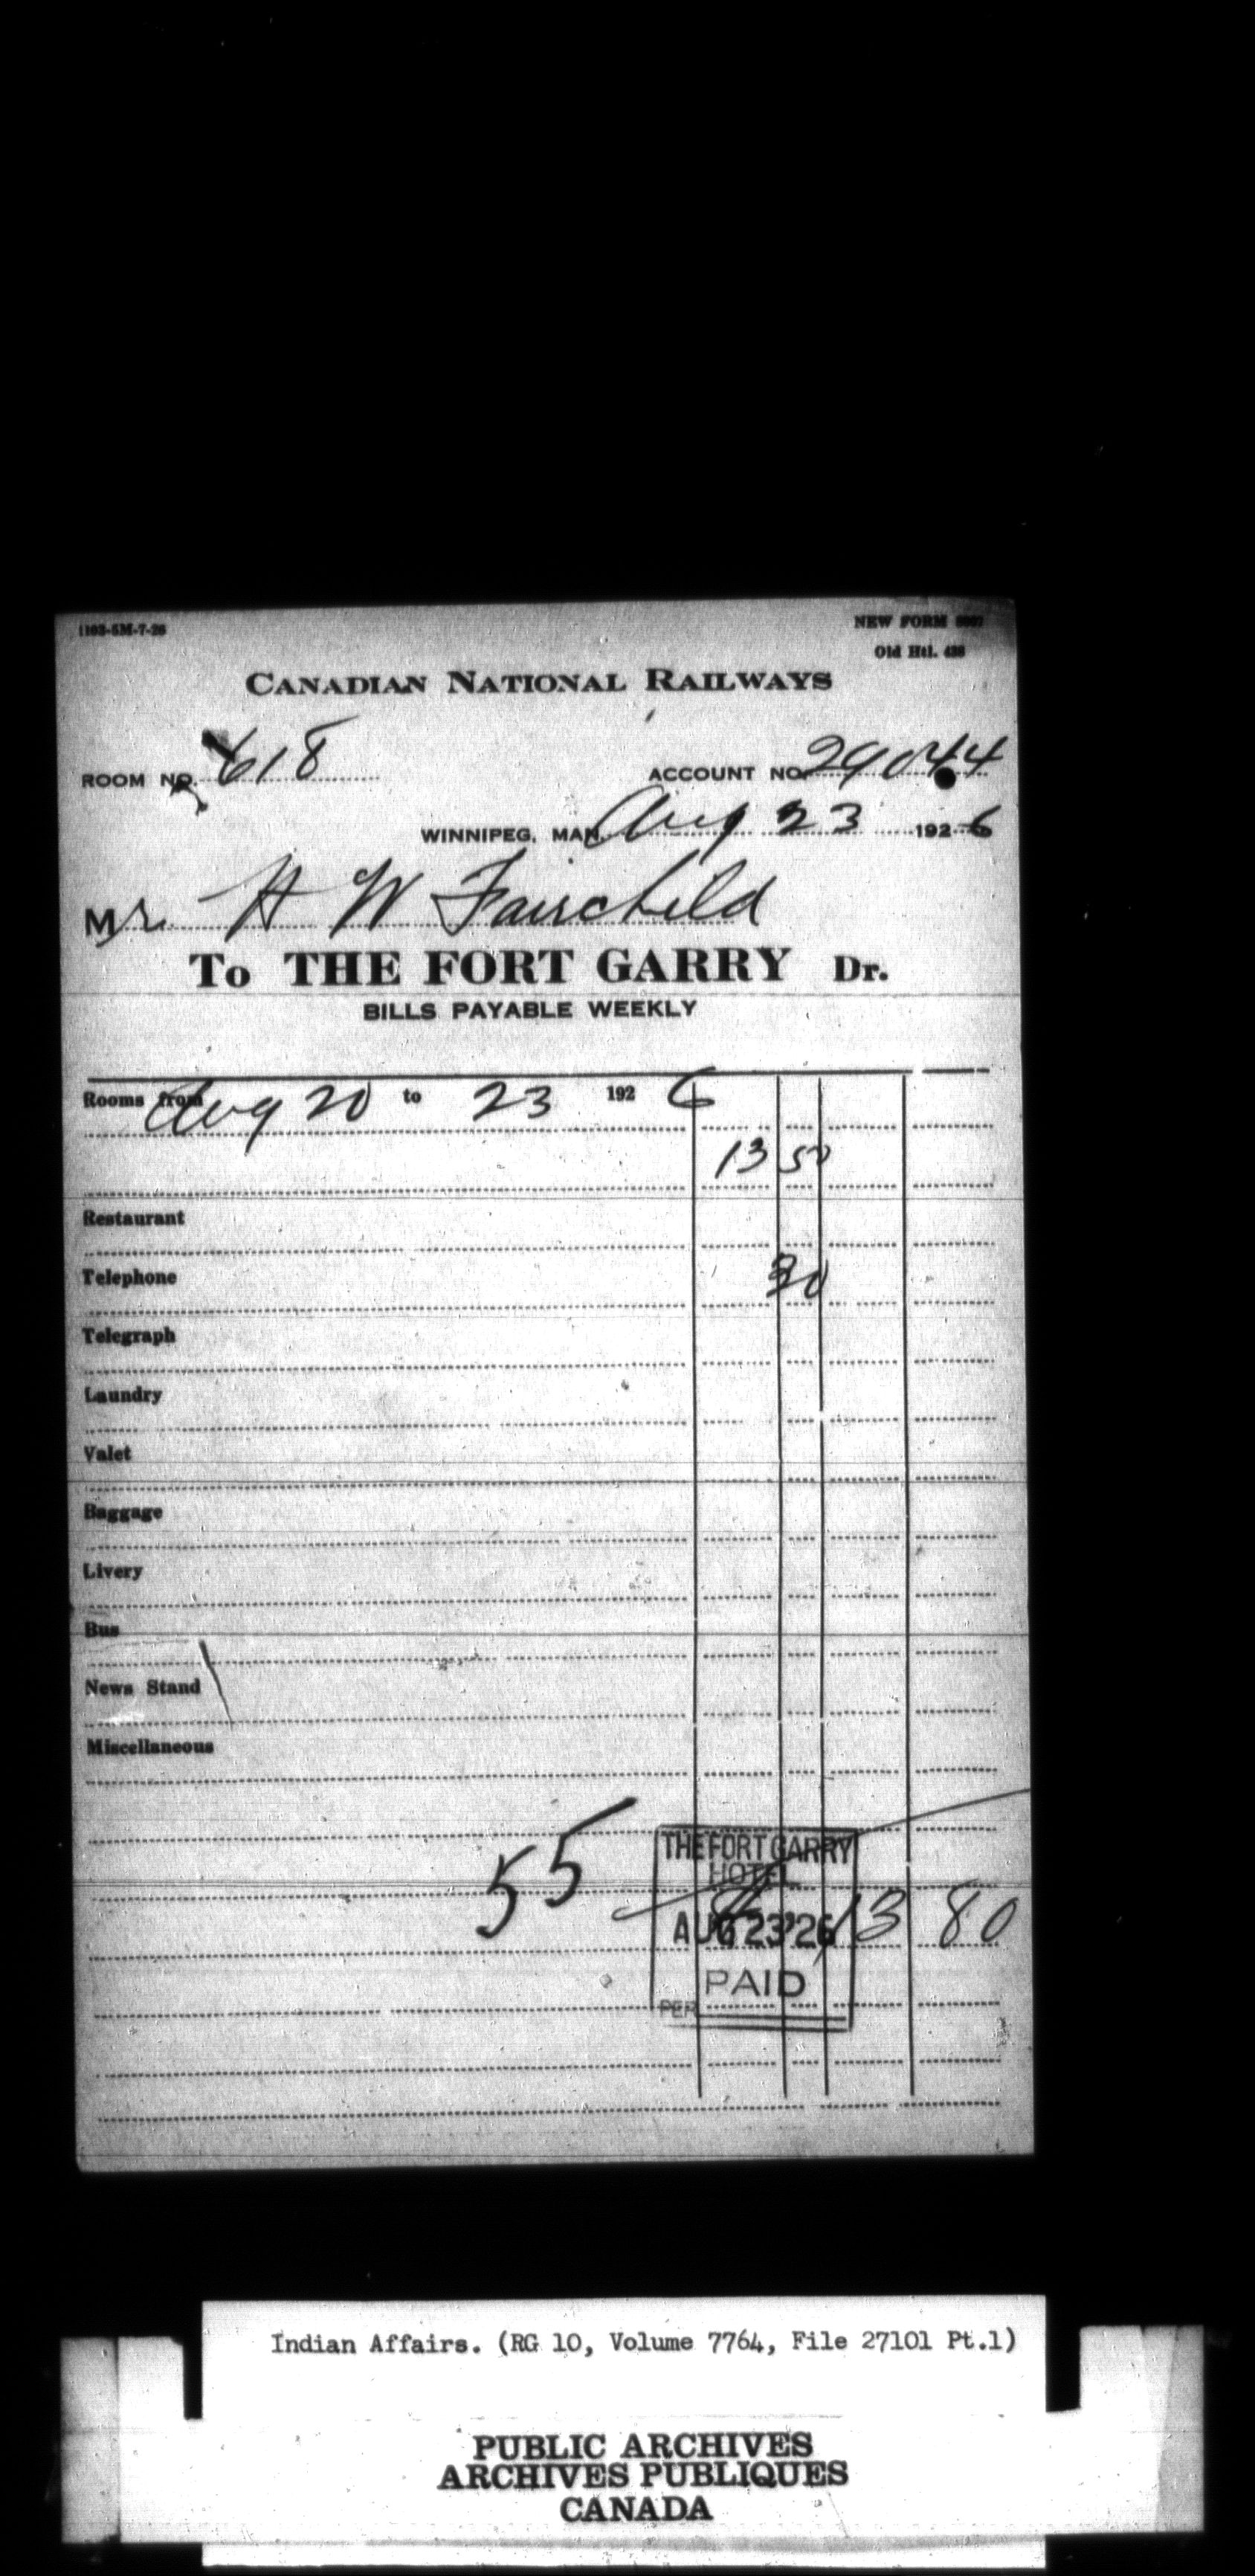 1103-5M-7-26
NEW FORM
Old Htl. 438
CANADIAN NATIONAL RAILWAYS
ROOM NO. 618
ACCOUNT NO. 29044
WINNIPEG, MAN. Aug 23 1926
Mr. H W Fairchild
To THE FORT GARRY Dr.
BILLS PAYABLE WEEKLY
Rooms from Aug 20 to 23 1926
13 50
Restaurant
Telephone 30
Telegraph
Laundry
Valet
Baggage
Livery
Bus
News Stand
Miscellaneous
55
THE FORT GARRY
HOTEL
AUG 23 '26
13 80
PAID
PER
Indian Affairs. (RG 10, Volume 7764, File 27101 Pt.1)
PUBLIC ARCHIVES
ARCHIVES PUBLIQUES
CANADA